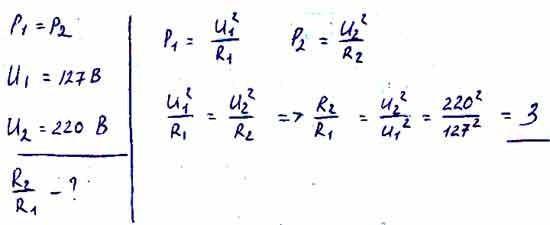 P₁ = P₂
U₁ = 127 В
U₂ = 220 В
R₂/R₁ - ?
P₁ = U₁²/R₁ P₂ = U₂²/R₂
U₁²/R₁ = U₂²/R₂ => R₂/R₁ = U₂²/U₁² = 220²/127² = 3